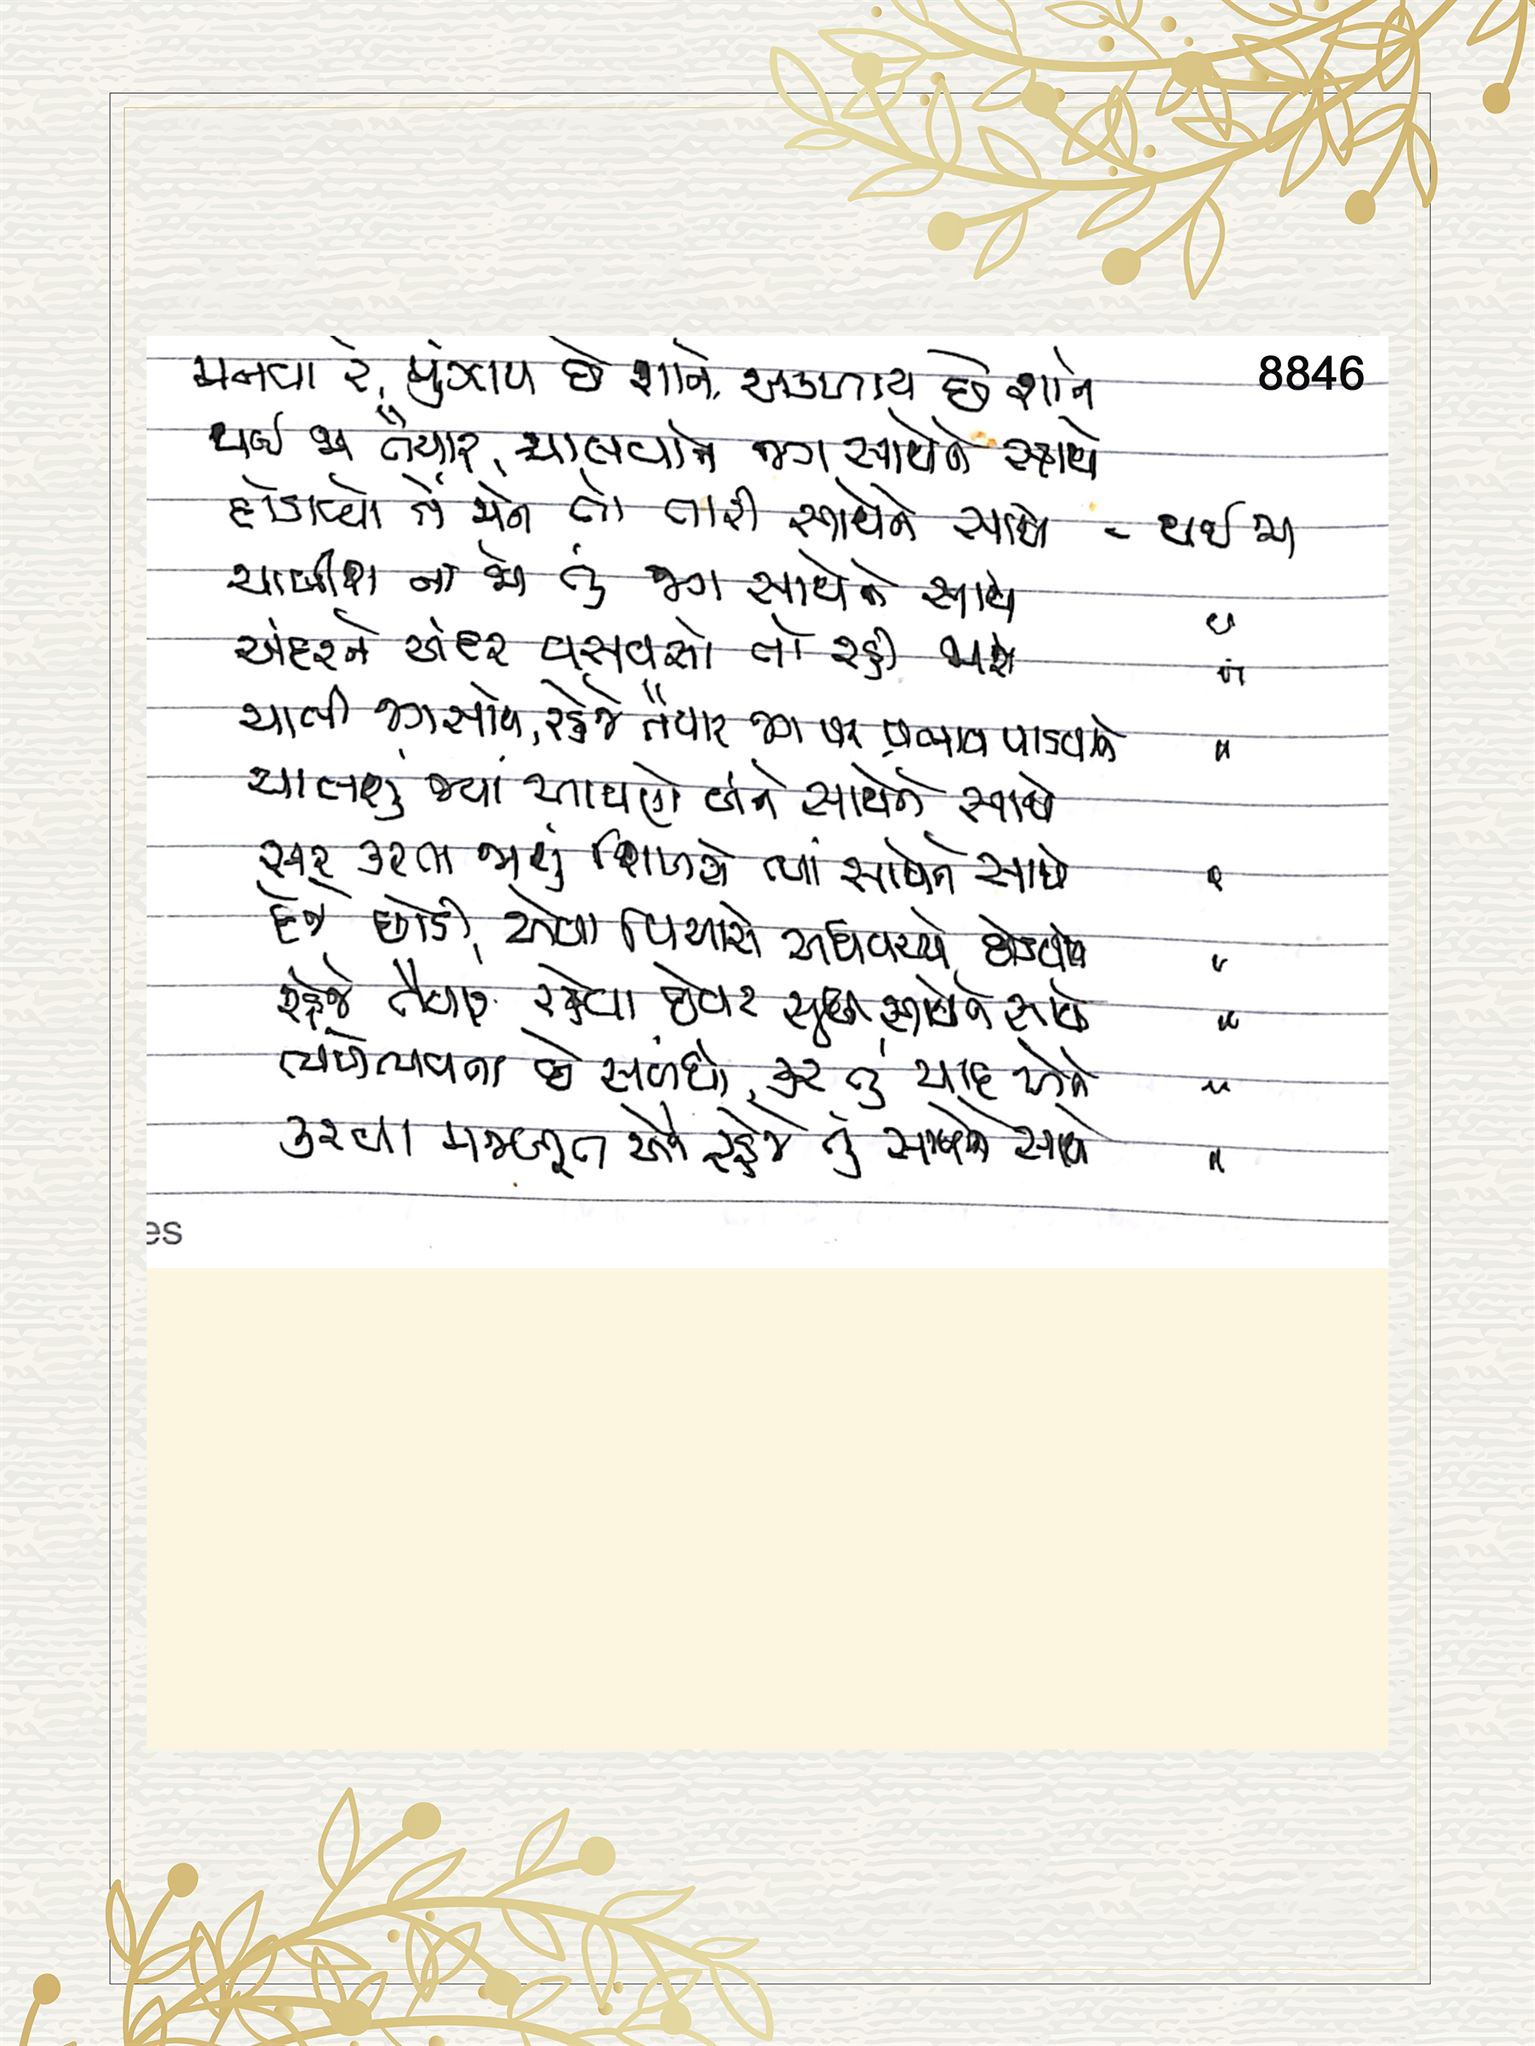 8846
મનવા રે, મુંઝાય છે શાને, અકળાય છે શાને
થઈ જા તૈયાર, ચાલવાને જગ સાથેને સાથે
દોડાવ્યો તેં મને તો તારી સાથેને સાથે - થઈ જા
ચાલીશ ના જો તું જગ સાથેને સાથે "
અંદરને અંદર વસવસો તો રહી જાશે "
ચાલી જગ સાથે, રહેજે તૈયાર જગ પર પ્રભાવ પાડવાને "
ચાલશું જ્યાં આપણે બંને સાથેને સાથે
સર કરતા જાશું શિખરો ત્યાં સાથેને સાથે "
દેજે છોડી, એવા વિચારો અધવચ્ચે છોડવાના "
રહેજે તૈયાર રહેવા છેવટ સુધી સાથેને સાથે "
ભવોભવના છે સંબંધો, કર તું યાદ એને "
કરવા મજબૂત એને રહેજે તું સાથેને સાથે "
es